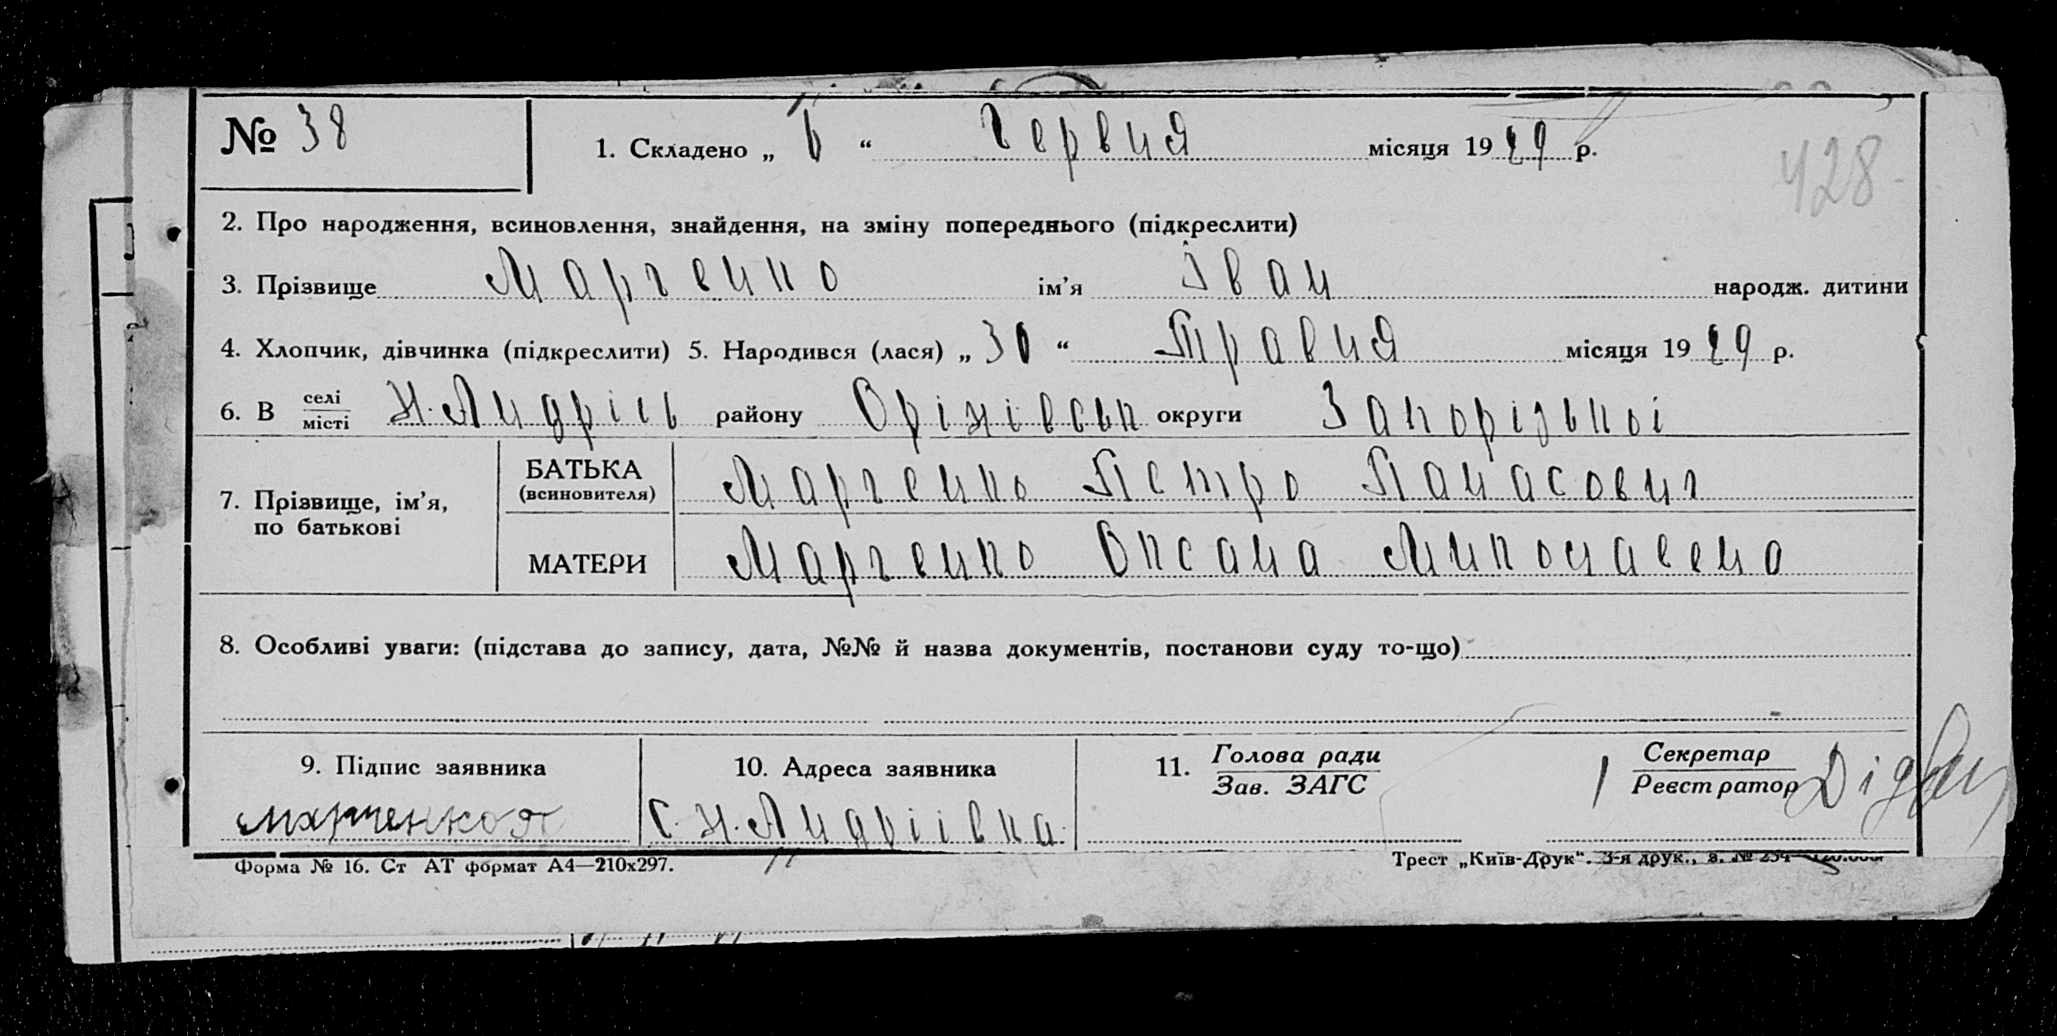 № 38
1. Складено „ 6 “ Червня місяця 1929 р.
428
2. Про народження, всиновлення, знайдення, на зміну попереднього (підкреслити)
3. Прізвище Марченко ім’я Іван народж. дитини
4. Хлопчик, дівчинка (підкреслити) 5. Народився (лася) „ 30 “ Травня місяця 1929 р.
6. В селі/місті Н. Андріів району Оріхівськ округи Запорізькоі
7. Прізвище, ім’я, по батькові
БАТЬКА (всиновителя) Марченко Петро Панасович
МАТЕРИ Марченко Оксана Миконаевна
8. Особливі уваги: (підстава до запису, дата, №№ й назва документів, постанови суду то-що)
9. Підпис заявника
марченко
10. Адреса заявника
с. Н. Андріівка
11. Голова ради
Зав. ЗАГС
Секретар
Реєстратор
Форма № 16. Ст АТ формат А4—210х297.
Трест „Київ-Друк“. 3-я друк., з. № 254